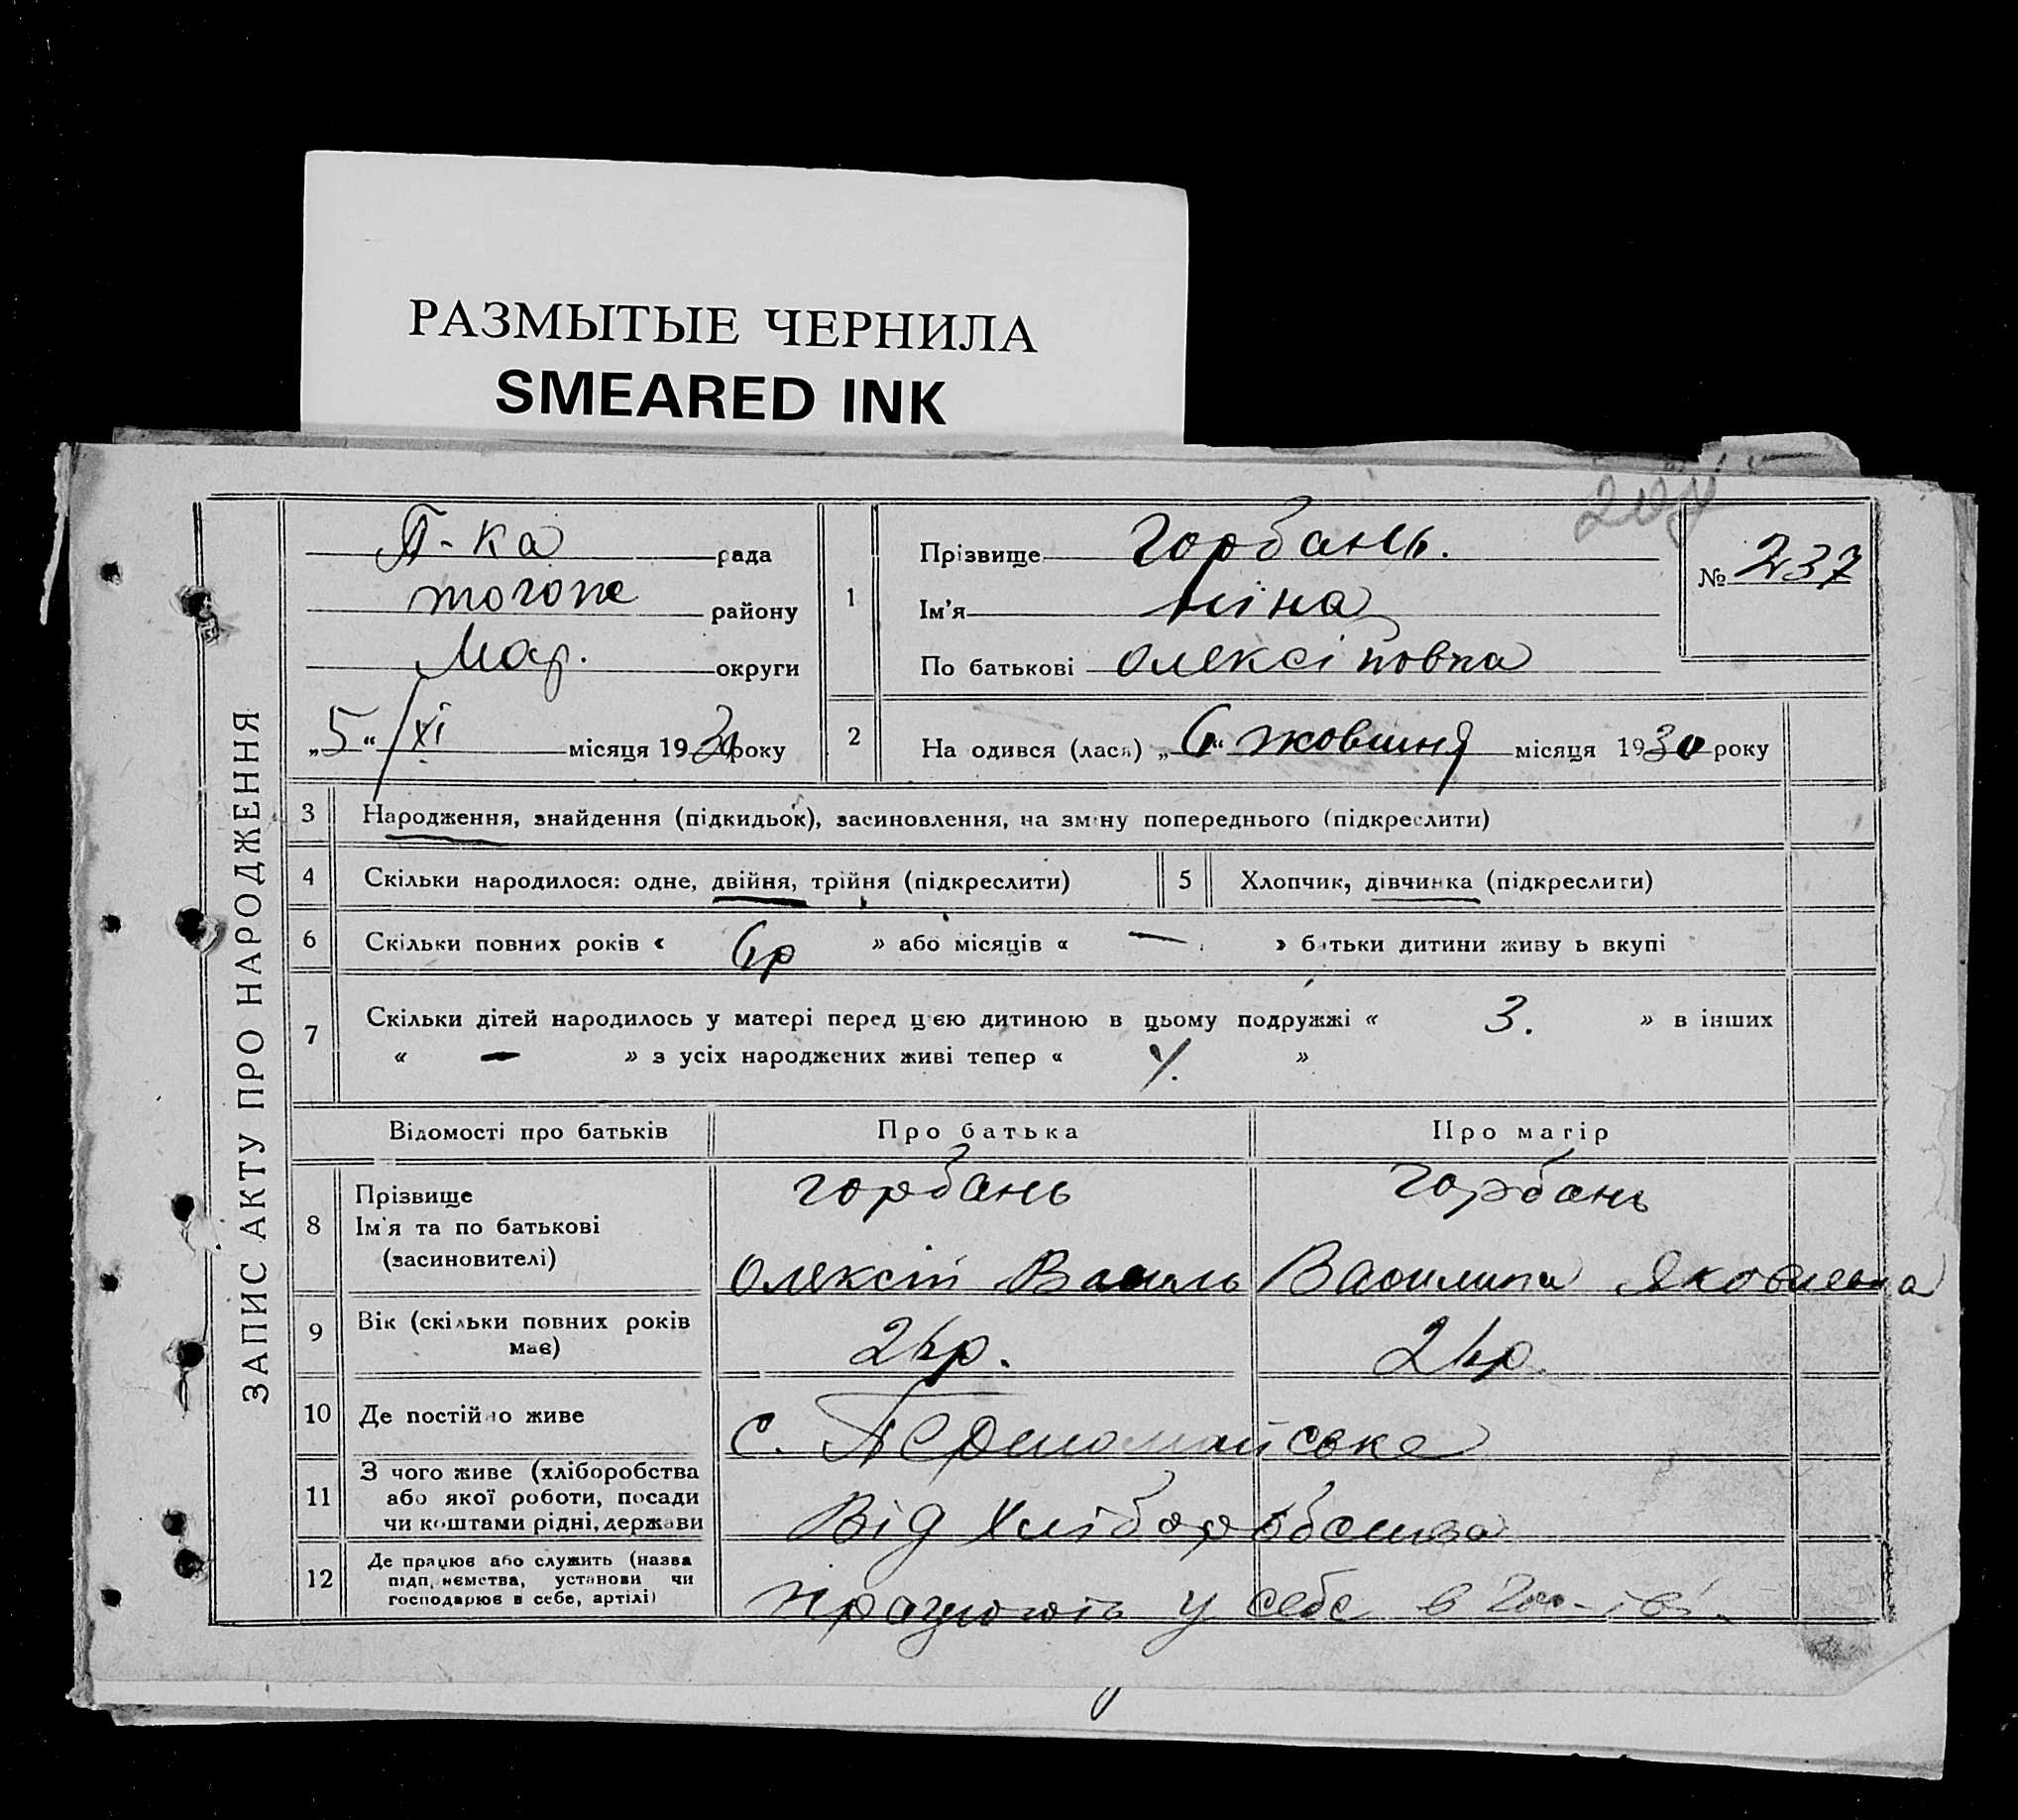 РАЗМЫТЫЕ ЧЕРНИЛА
SMEARED INK
ЗАПИС АКТУ ПРО НАРОДЖЕННЯ
П-ка рада
тогоже району
Мар. округи
„5“/XI місяця 1930 року
1
Прізвище Горбань.
Ім’я Ніна
По батькові Олексіївна
№ 237
2
На одився (лася) „6“ жовтня місяця 1930 року
3 Народження, знайдення (підкидьок), засиновлення, на зміну попереднього (підкреслити)
4 Скільки народилося: одне, двійня, трійня (підкреслити)
5 Хлопчик, дівчинка (підкреслити)
6 Скільки повних років « 6р » або місяців « — » батьки дитини живу ь вкупі
7 Скільки дітей народилось у матері перед цією дитиною в цьому подружжі « 3. » в інших
« — » з усіх народжених живі тепер « »
Відомості про батьків Про батька Про матір
8 Прізвище Горбань Горбань
Ім'я та по батькові
(засиновителі) Олексій Василь Василина Яковлевна
9 Вік (скільки повних років
має)
10 Де постійно живе с. Первомайське
11 З чого живе (хліборобства
або якої роботи, посади
чи коштами рідні, держави Від хліборобства
12 Де працює або служить (назва
підп, ємства, установи чи
господарює в себе, артілі) працюють у себе в